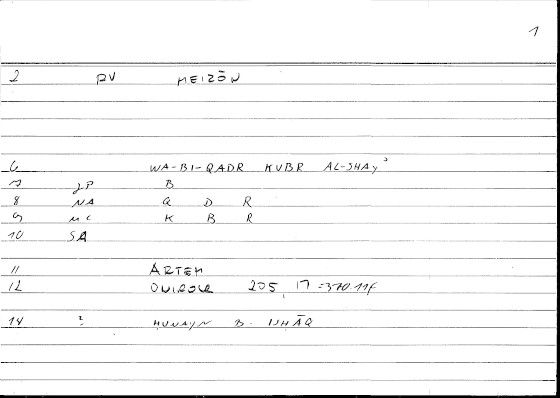 1
2 pv meizōn
6 WA-BI-QADR KUBR AL-SHAYʾ
7 JP B
8 NA Q D R
9 MC K B R
10 SA
11 ARTEM
12 ONIROCR 205, 17 = 370.11f
14 ? ḤUNAYN B. ISḤĀQ